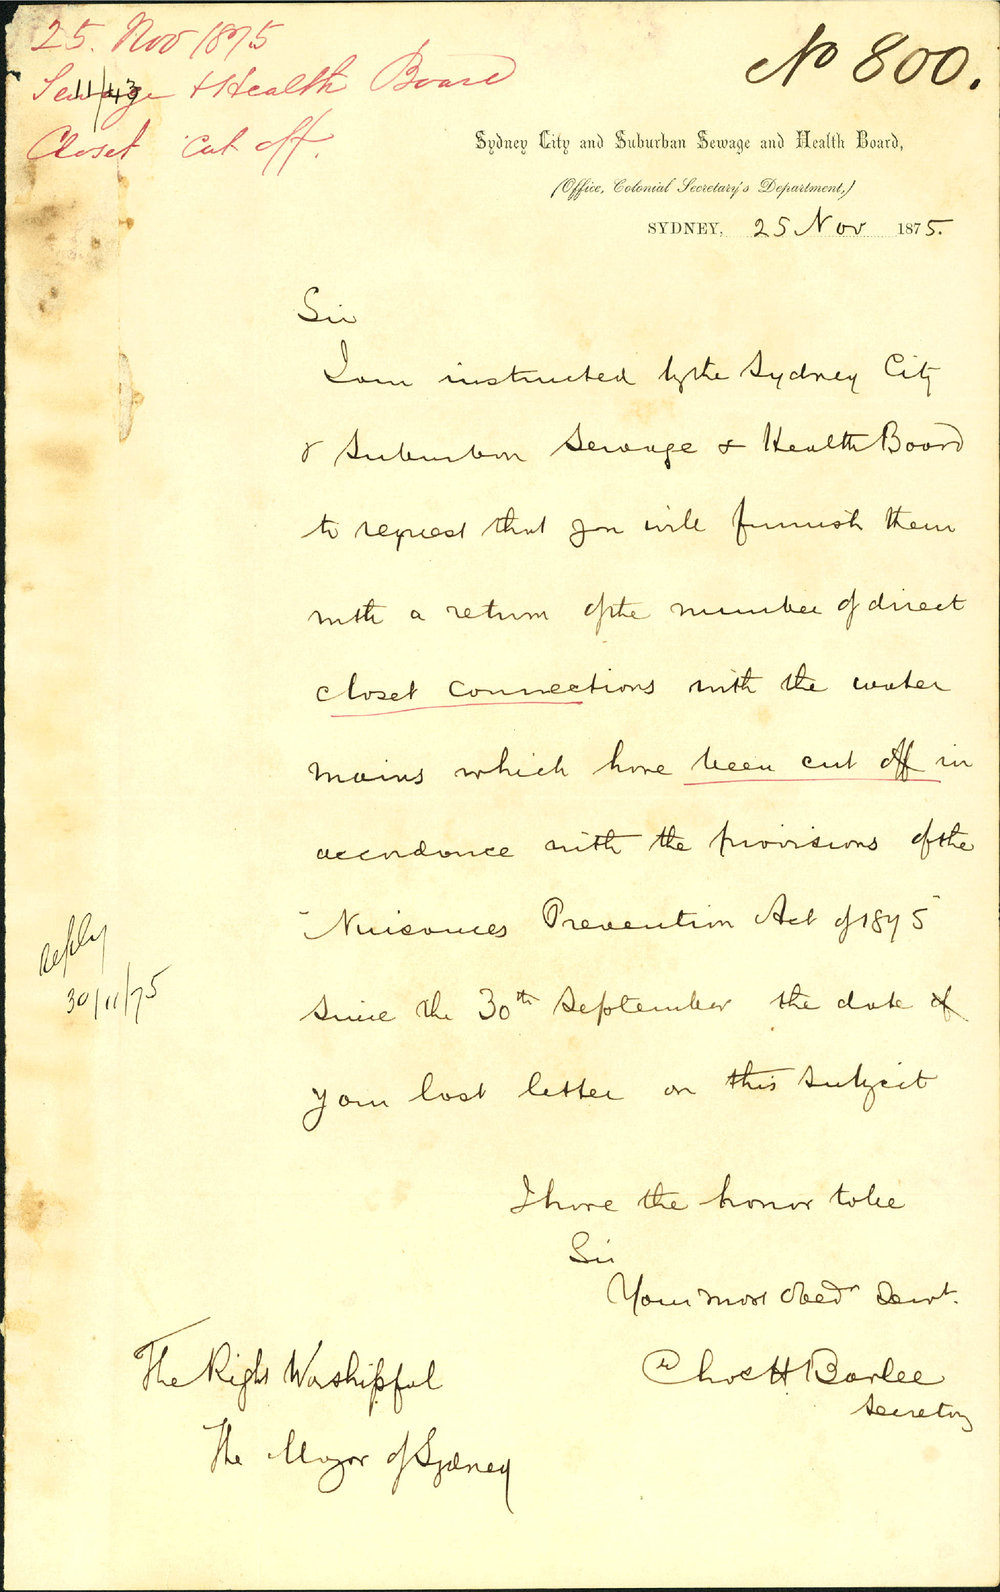 25. Nov 1875
Sewage & Health Board
11/43
Closet cut off.
No 800.
Sydney City and Suburban Sewage and Health Board,
(Office, Colonial Secretary's Department,)
SYDNEY, 25 Nov 1875.
Sir
I am instructed by the Sydney City
& Suburban Sewage & Health Board
to request that you will furnish them
with a return of the number of direct
closet connections with the water
mains which have been cut off in
accordance with the provisions of the
"Nuisances Prevention Act of 1875"
since the 30th September the date of
your last letter on this subject
reply
30/11/75
I have the honor to be
Sir
Your most obedt Servt.
Chas H Barlee
Secretary
The Right Worshipful
The Mayor of Sydney